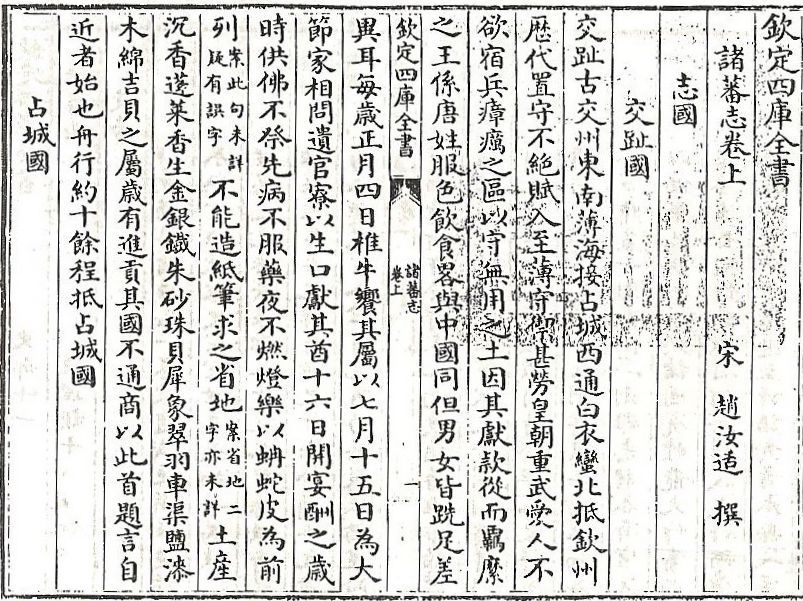 欽定四庫全書
諸蕃志卷上
宋 趙汝适 撰
志國
交趾國
交趾古交州東南薄海接占城西通白衣蠻北抵欽州
歷代置守不絶賦入至薄守禦甚勞皇朝重武愛人不
欲宿兵瘴癘之區以守無用之土因其獻款從而羈縻
之王係唐姓服色飲食畧與中國同但男女皆跣足差
欽定四庫全書
諸蕃志
卷上
一
異耳每歲正月四日椎牛饗其屬以七月十五日為大
節家相問遺官寮以生口獻其酋十六日開宴酬之歲
時供佛不祭先病不服藥夜不燃燈樂以蚺蛇皮為前
列案此句未詳疑有誤字不能造紙筆求之省地案省地二字亦未詳土產
沉香蓬萊香生金銀鐵朱砂珠貝犀象翠羽車渠鹽漆
木綿吉貝之屬歲有進貢其國不通商以此首題言自
近者始也舟行約十餘程抵占城國
占城國